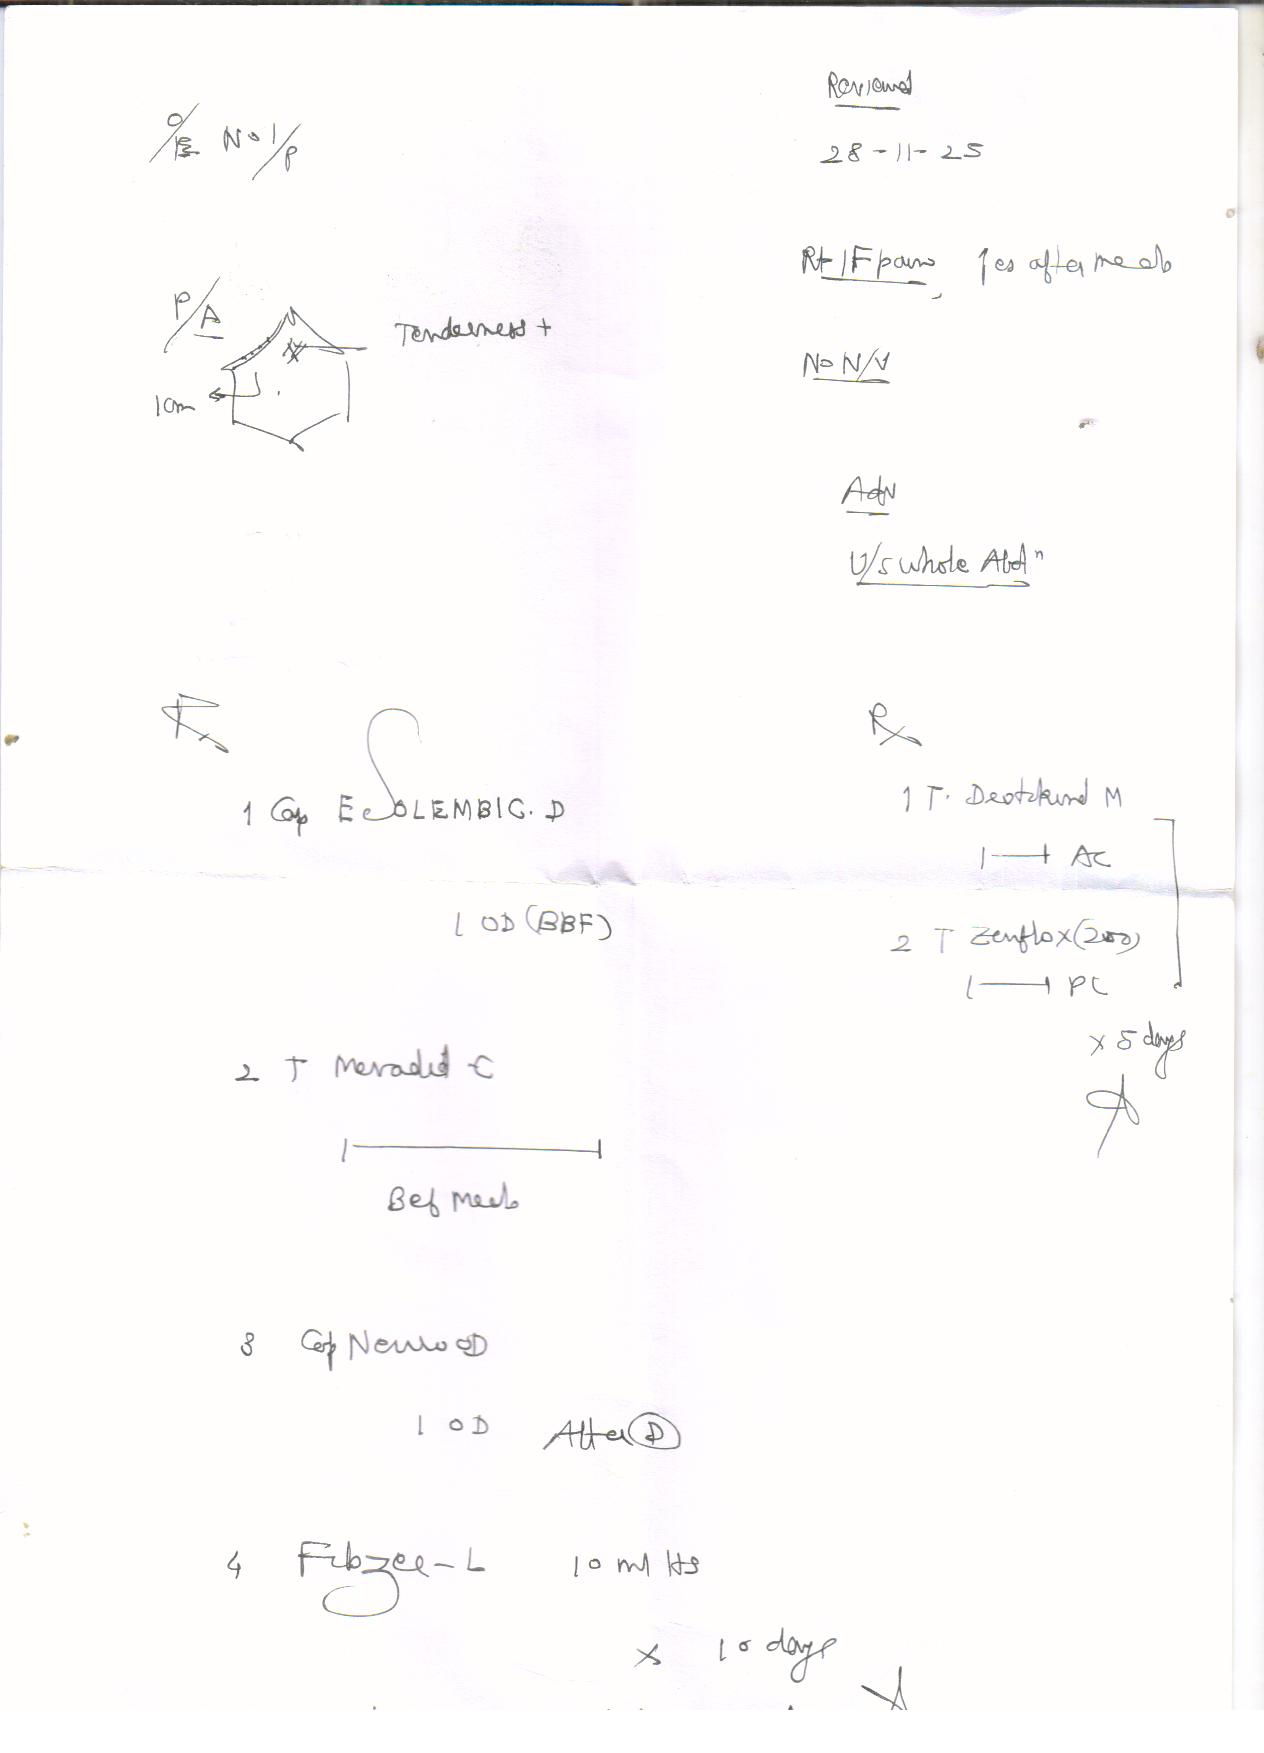 O/E No I/P
P/A
Tenderness +
1 cm
Rx
1 Cap ESOLEMBIC. D
1 OD (BBF)
2 T -C
1——1
Bef Meals
3 Cap Neuro D
1 OD After D
4 Fibzee-L 10 ml HS
x 10 days
Reviewed
28-11-25
Rt IF pain, ↑es after meals
No N/V
Adv
U/S whole Abdn
Rx
1 T. M
1——1 AC
2 T Zenflox (200)
1——1 PC
x 5 days